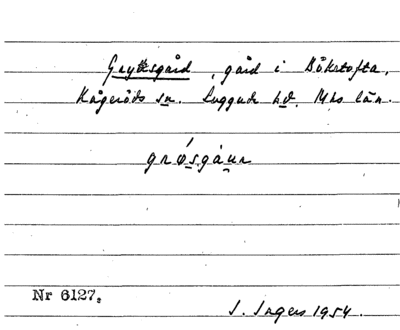 Gryttsgård, gård i Böketofta,
Kågeröds sn. Luggude hd. Mhs län.
grø´sgå̀ur
Nr 6127.
I. Ingers 1954.